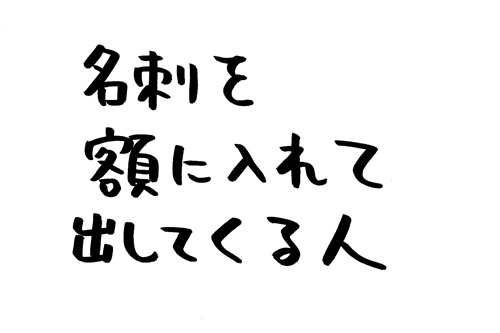 名刺を
額に入れて
出してくる人